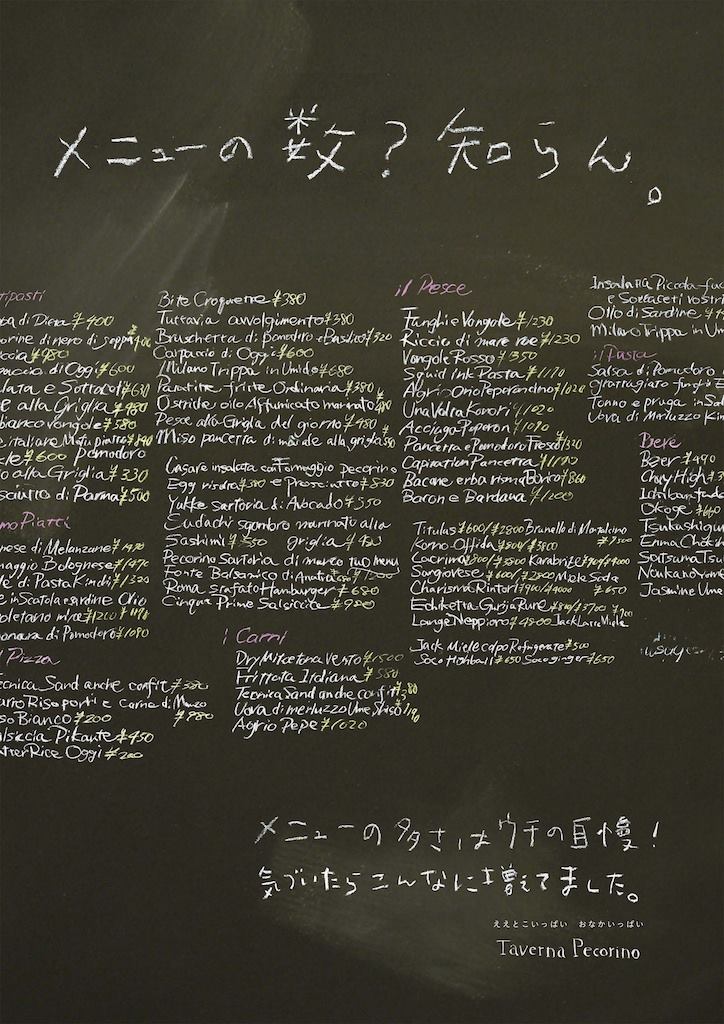 メニューの数？知らん。
tipasti
ba di Diera ¥400
¥980
accio di Oggi ¥600
lata e Sottacoli ¥630
e alla Griglia ¥980
bianco vongole ¥580
¥600 pomodoro
o alla Griglia ¥330
sciutto di Parma ¥500
mo Piatti
nese di Melanzane ¥1490
naggio Bolognese ¥1490
di Pasta Kimdi ¥1320
e in Scatola e sardine Olio
onara di Pomodoro ¥1090
Pizza
ecnica Sand anche confit ¥380
ario Riso porti e carne di Manzo
so Bianco ¥200 ¥980
alsiccia Pikante ¥450
atter Rice Oggi ¥200
Bite Croquette ¥380
Tuttavia avvolgimento ¥380
Bruschetta di pomodoro e Basilico ¥320
Carpaccio di Oggi ¥600
Milano Trippa in Umido ¥680
Patatine fritte Ordinaria ¥380
Ostriche olio Affumicato marinato ¥480
Pesce alla Griglia del giorno ¥480
Miso pancetta di maiale alla griglia
Casare insalata con Formaggio pecorino
Egg risotto ¥380 e Prosciutto ¥830
Yukke sartoria di Avocado ¥550
Eudachi sgombro marinato alla
Sashimi ¥550 griglia ¥480
Pecorino Sartoria di manzo tuo menu
Fonte Balsamico di
Roma strafatto Hamburger ¥680
Cinque Prime Salsiccia ¥980
i Carni
Dry Mitcetona Vento ¥1500
Frittata Italiana ¥580
Tecnica Sand anche confit ¥380
Uova di merluzzo Ume Shiso
Agrio Pepe ¥1020
il Pesce
Funghi e Vongole ¥1230
Riccio di mare rue ¥1230
Vongole Rosso ¥1350
Squid Ink Pasta ¥1170
Aglrio Onio Peperoncino ¥1020
Una Volta Konori ¥1020
Acciuga Peperon ¥1090
Pancetta e Pomodoro Fresco
Capiration Pancetta ¥1190
Bacone erba risma Bianco ¥860
Bacon e Bardana ¥1000
Titulus ¥600/¥2800 Brunello di Montalcino
Komo Offida ¥800/¥3800 ¥7500
Lacrima ¥800/¥3800 Kanabrize
Sangiovese ¥600/¥2800 Miele Soda
Charisma Rintori ¥900/¥4000 ¥650
Eduketta Gurija Pure ¥800/¥3700 ¥700
Lounge Neppioro ¥4500 Jack Latte Miele
Jack Miele colpo Refrigerate ¥500
Soco Highball ¥650 Soco ginger ¥650
Insalata Piccola-fuc
e Sottaceti vostri
Olio di Sardine
Milano Trippa in Um
il Pasta
Salsa di Pomodoro
Sparpagliato funghi
Tonno e pruga in Sal
Uova di Merluzzo Kim
Bere
Beer ¥490
Chny High ¥3
Ichiban tuda
Okoge ¥640
Tsukushigu
Emma Choki
Satsuma Tsu
Nakanovimo
Jasmine Ume
メニューの多さはウチの自慢！
気づいたらこんなに増えてました。
ええとこいっぱい おなかいっぱい
Taverna Pecorino